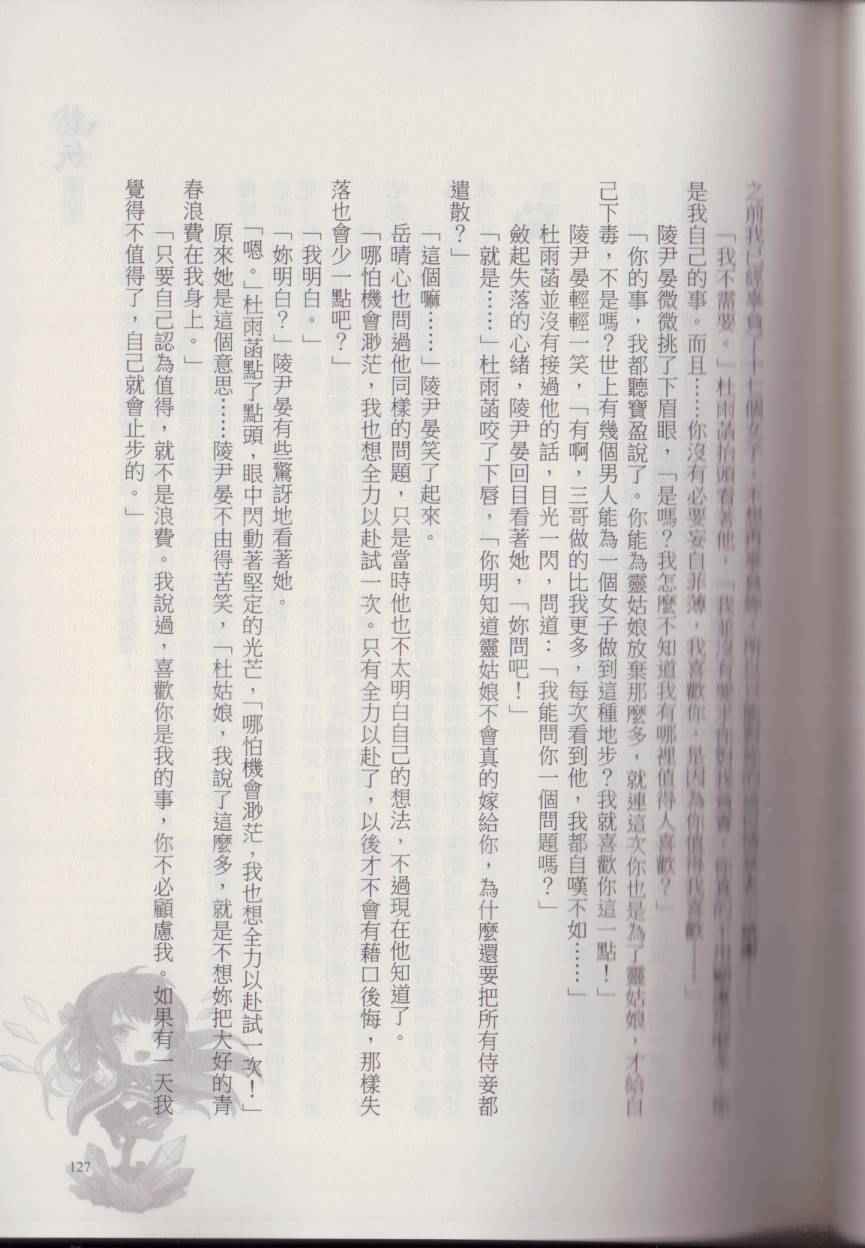 之前我已經辜負了十七個女子，不想再辜負妳，所以
「我不需要。」杜雨菡抬頭看著他，「我並沒有
是我自己的事。而且……你沒有必要妄自菲薄，我喜歡你，是因為你值得我喜歡……」
陵尹晏微微挑了下眉眼，「是嗎？我怎麼不知道我有哪裡值得人喜歡？」
「你的事，我都聽寶盈說了。你能為靈姑娘放棄那麼多，就連這次你也是為了靈姑娘，才給自
己下毒，不是嗎？世上有幾個男人能為一個女子做到這種地步？我就喜歡你這一點！」
陵尹晏輕輕一笑，「有啊，三哥做的比我更多，每次看到他，我都自嘆不如……」
杜雨菡並沒有接過他的話，目光一閃，問道：「我能問你一個問題嗎？」
斂起失落的心緒，陵尹晏回目看著她，「妳問吧！」
「就是……」杜雨菡咬了下唇，「你明知道靈姑娘不會真的嫁給你，為什麼還要把所有侍妾都
遣散？」
「這個嘛……」陵尹晏笑了起來。
岳晴心也問過他同樣的問題，只是當時他也不太明白自己的想法，不過現在他知道了。
「哪怕機會渺茫，我也想全力以赴試一次。只有全力以赴了，以後才不會有藉口後悔，那樣失
落也會少一點吧？」
「我明白。」
「妳明白？」陵尹晏有些驚訝地看著她。
「嗯。」杜雨菡點了點頭，眼中閃動著堅定的光芒，「哪怕機會渺茫，我也想全力以赴試一次！」
原來她是這個意思……陵尹晏不由得苦笑，「杜姑娘，我說了這麼多，就是不想妳把大好的青
春浪費在我身上。」
「只要自己認為值得，就不是浪費。我說過，喜歡你是我的事，你不必顧慮我。如果有一天我
覺得不值得了，自己就會止步的。」
127